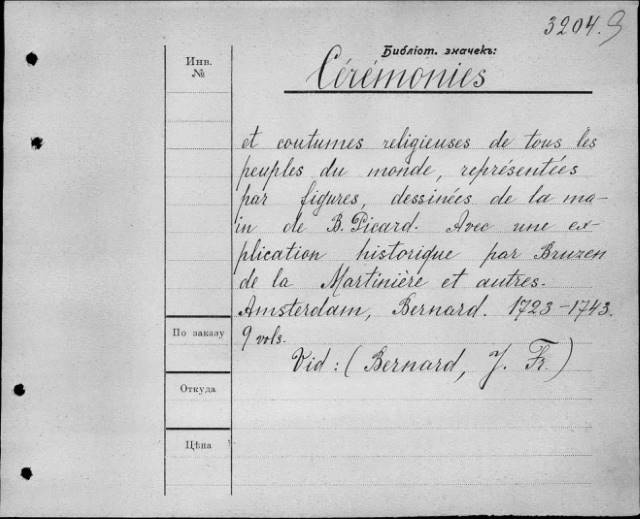 3204.9
Библіот. значекъ:
Инв.
№
Cérémonies
et coutumes religieuses de tous les
peuples du monde, représentées
par figures, dessinées de la ma-
in de B. Picard. Avec une ex-
plication historique par Bruzen
de la Martinière et autres.
Amsterdam, Bernard. 1723-1743.
9 vols.
Vid: (Bernard, J. Fr.)
По заказу
Откуда
Цѣна